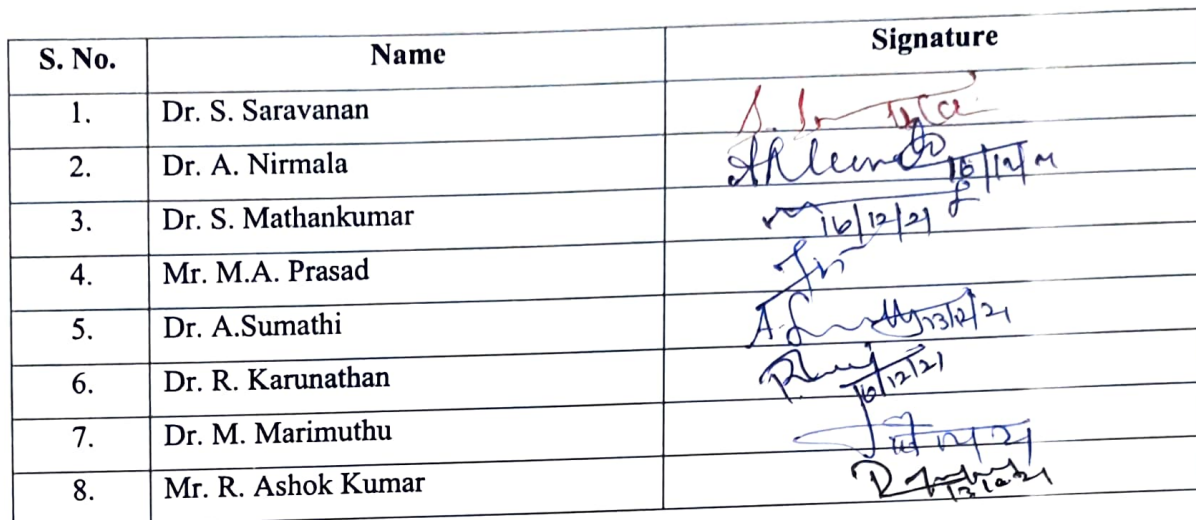 S. No. Name Signature
1. Dr. S. Saravanan
2. Dr. A. Nirmala 16/12/21
3. Dr. S. Mathankumar 16/12/21
4. Mr. M.A. Prasad
5. Dr. A.Sumathi 13/12/21
6. Dr. R. Karunathan 16/12/21
7. Dr. M. Marimuthu
8. Mr. R. Ashok Kumar